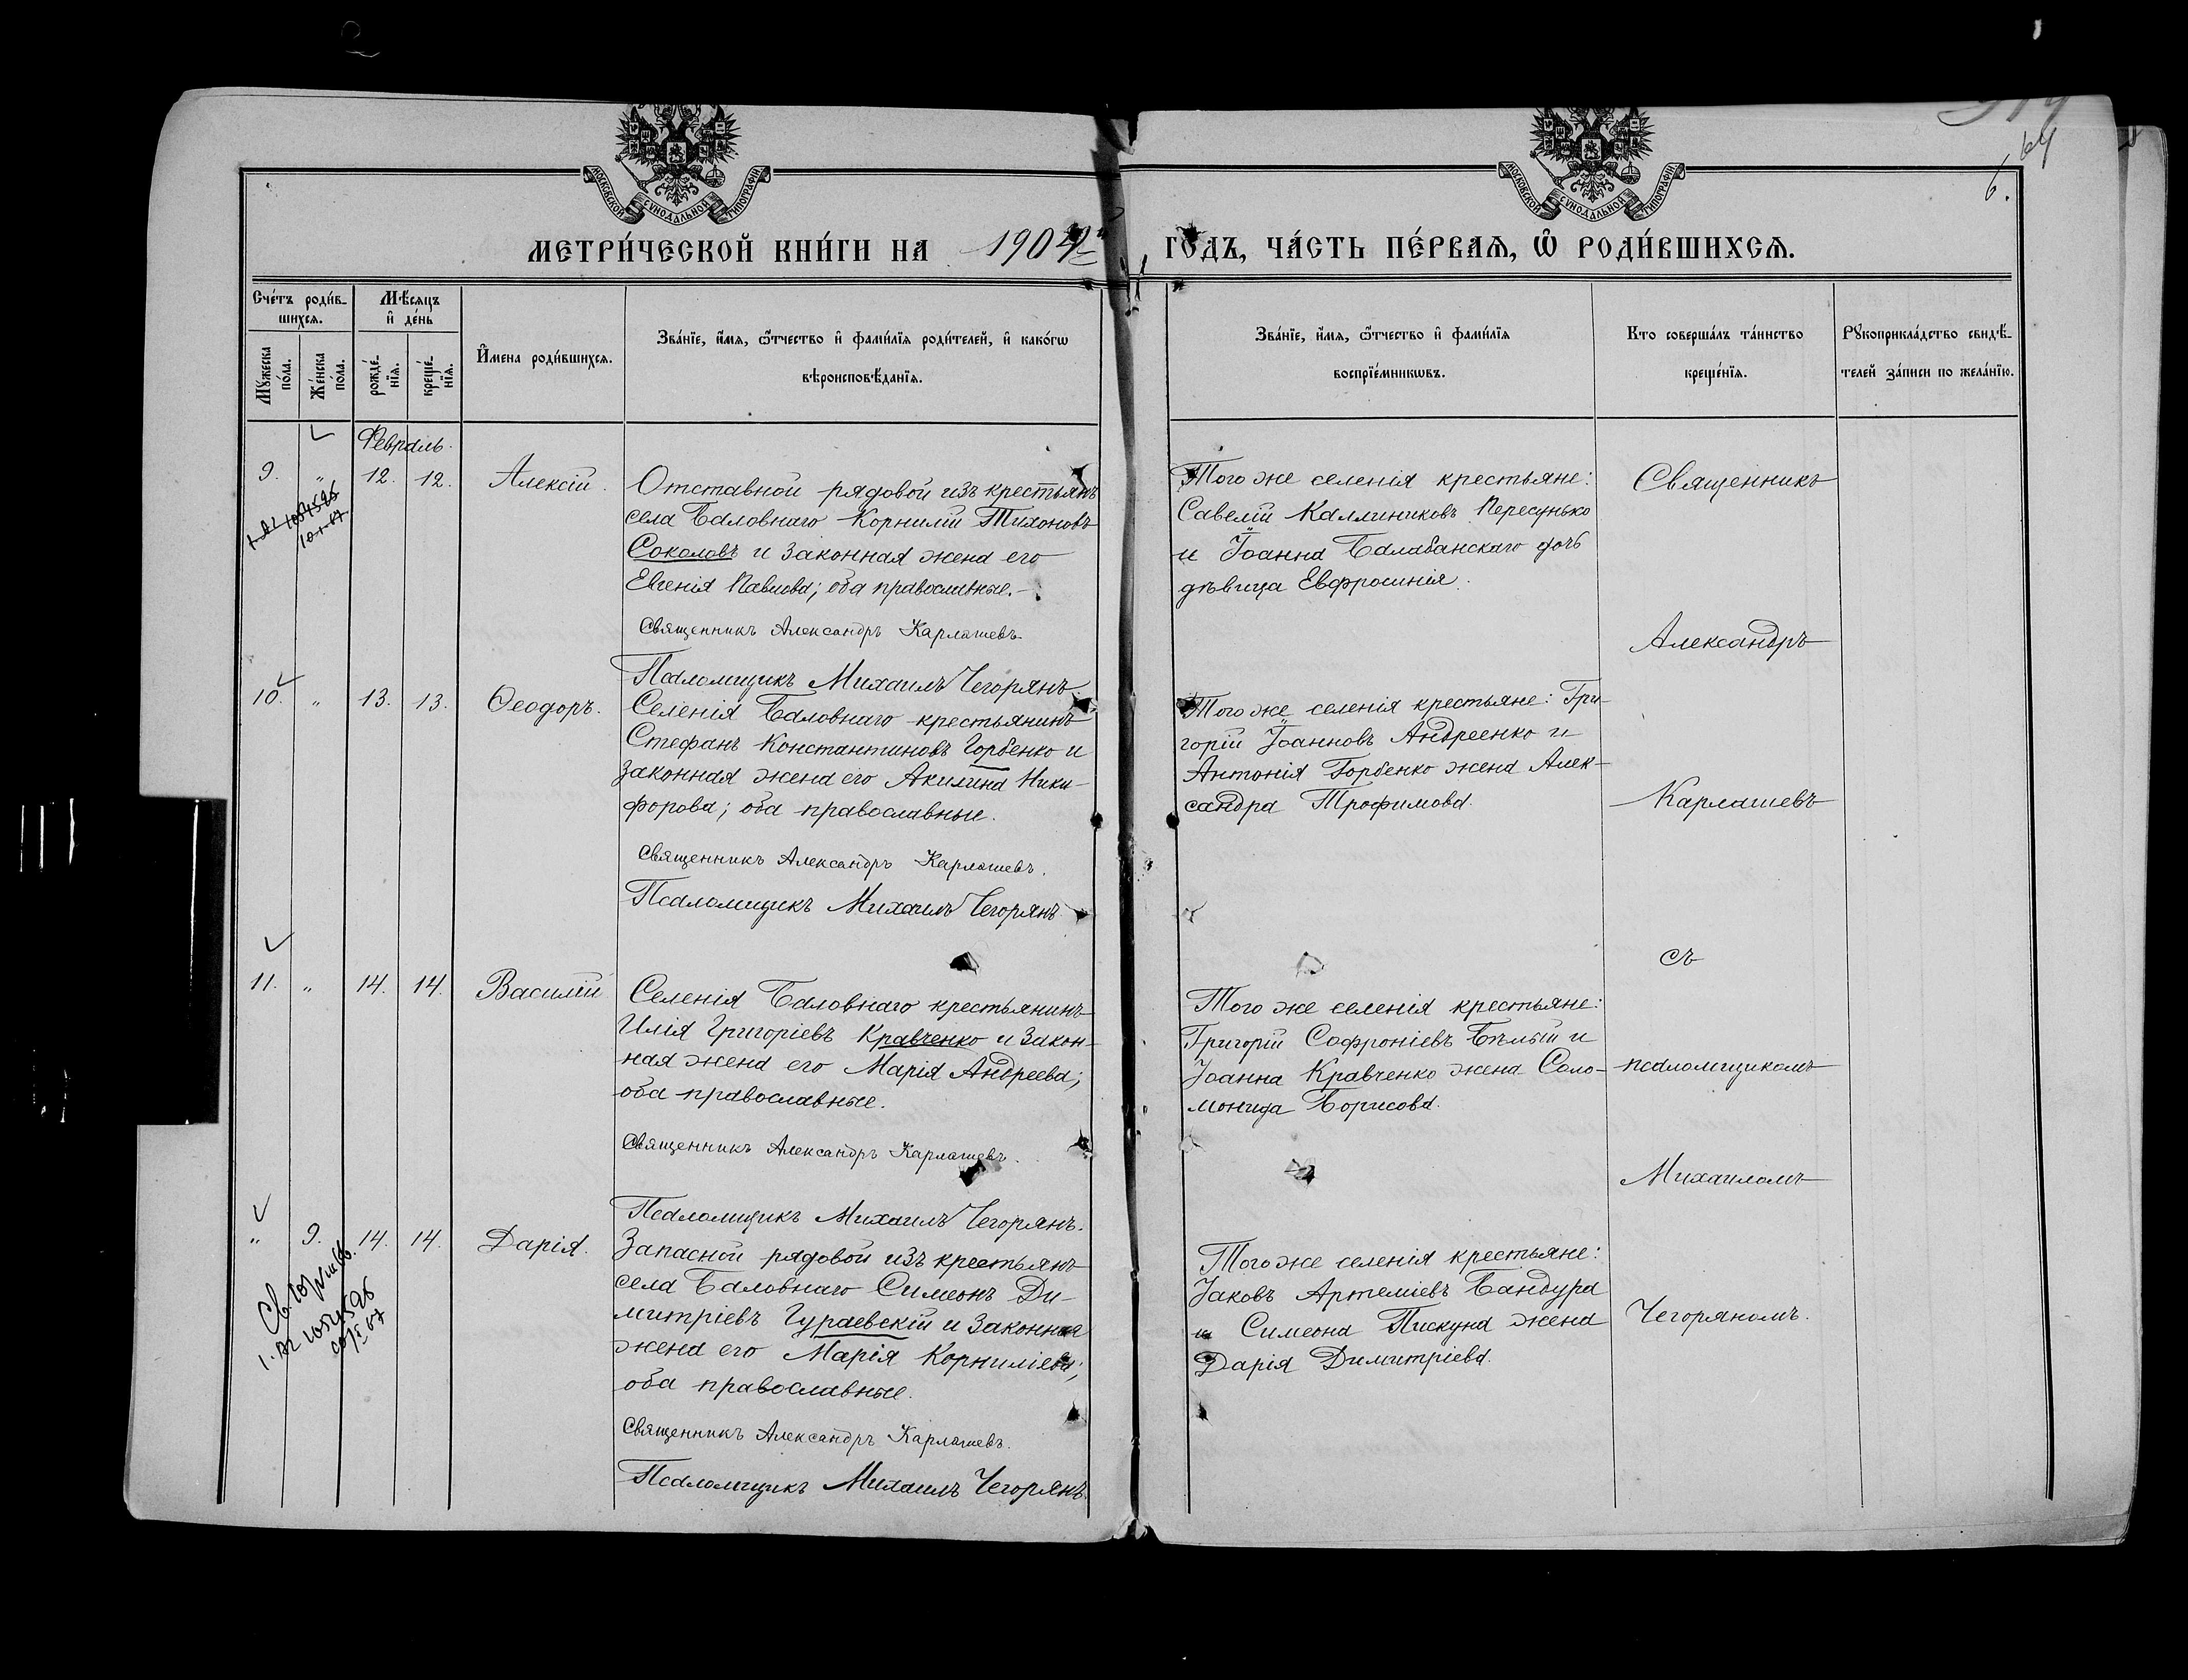 МОСКОВСКОЙ СѴНОДАЛЬНОЙ ТИПОГРАФІИ
МОСКОВСКОЙ СѴНОДАЛЬНОЙ ТИПОГРАФІИ
64
6.
МЕТРИ́ЧЕСКОЙ КНИ́ГИ НА 1904й
ГО́ДЪ, ЧА́СТЬ ПЕ́РВАѦ, Ѡ҆ РОДИ́ВШИХСѦ.
Сче́тъ роди́в-
шихсѧ.
Мꙋ́жеска по́ла.
Же́нска по́ла.
Мѣ́сѧцъ
и҆ де́нь
рожде́-
нїѧ.
креще́-
нїѧ.
И҆мена роди́вшихсѧ.
Зва́нїе, и҆́мѧ, ѻ҆́тчество и҆ фами́лїѧ роди́телей, и҆ како́гѡ
вѣроисповѣ́данїѧ.
Зва́нїе, и҆́мѧ, ѻ҆́тчество и҆ фами́лїѧ
воспрїе́мникѡвъ.
Кто соверша́лъ та́инство
креще́нїѧ.
Рꙋкоприкла́дство свидѣ́-
телей за́писи по жела́нїю.
Февраль.
9. „ 12. 12. Алексій.
Отставной рядовой изъ крестьянъ
села Баловнаго Корнилій Тихоновъ
Соколовъ и законная жена его
Евгенія Павлова; оба православные.
Священникъ Александръ Карлашевъ.
Псаломщикъ Михаилъ Чегорянъ.
Того же селенія крестьяне:
Савелій Каллиниковъ Пересунько
и Іоанна Балабанскаго дочь
дѣвица Евфросинія.
10. „ 13. 13. Ѳеодоръ.
Селенія Баловнаго крестьянинъ
Стефанъ Константиновъ Горбенко и
законная жена его Акилина Ники-
форова; оба православные.
Священникъ Александръ Карлашевъ.
Псаломщикъ Михаилъ Чегорянъ.
Того же селенія крестьяне: Гри-
горій Іоанновъ Андреенко и
Антонія Горбенко жена Алек-
сандра Трофимова.
11. „ 14. 14. Василій
Селенія Баловнаго крестьянинъ
Илія Григоріевъ Кравченко и закон-
ная жена его Марія Андреева;
оба православные.
Священникъ Александръ Карлашевъ.
Псаломщикъ Михаилъ Чегорянъ.
Того же селенія крестьяне:
Григорій Софроніевъ Бѣлый и
Іоанна Кравченко жена Соло-
монида Борисова.
„ 9. 14. 14. Дарія.
Запасной рядовой изъ крестьянъ
села Баловнаго Симеонъ Ди-
митріевъ Гураевскій и законная
жена его Марія Корниліева;
оба православные.
Священникъ Александръ Карлашевъ.
Псаломщикъ Михаилъ Чегорянъ.
Того же селенія крестьяне:
Іаковъ Артеміевъ Бандура
и Симеона Пискуна жена
Дарія Димитріева.
Священникъ
Александръ
Карлашевъ
съ
псаломщикомъ
Михаиломъ
Чегоряномъ.